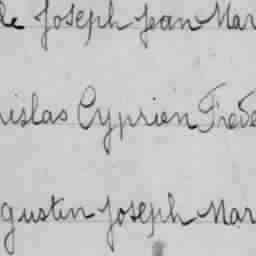 le Joseph Jean Mar
nislas Cyprien Fréde
gustin Joseph Mar